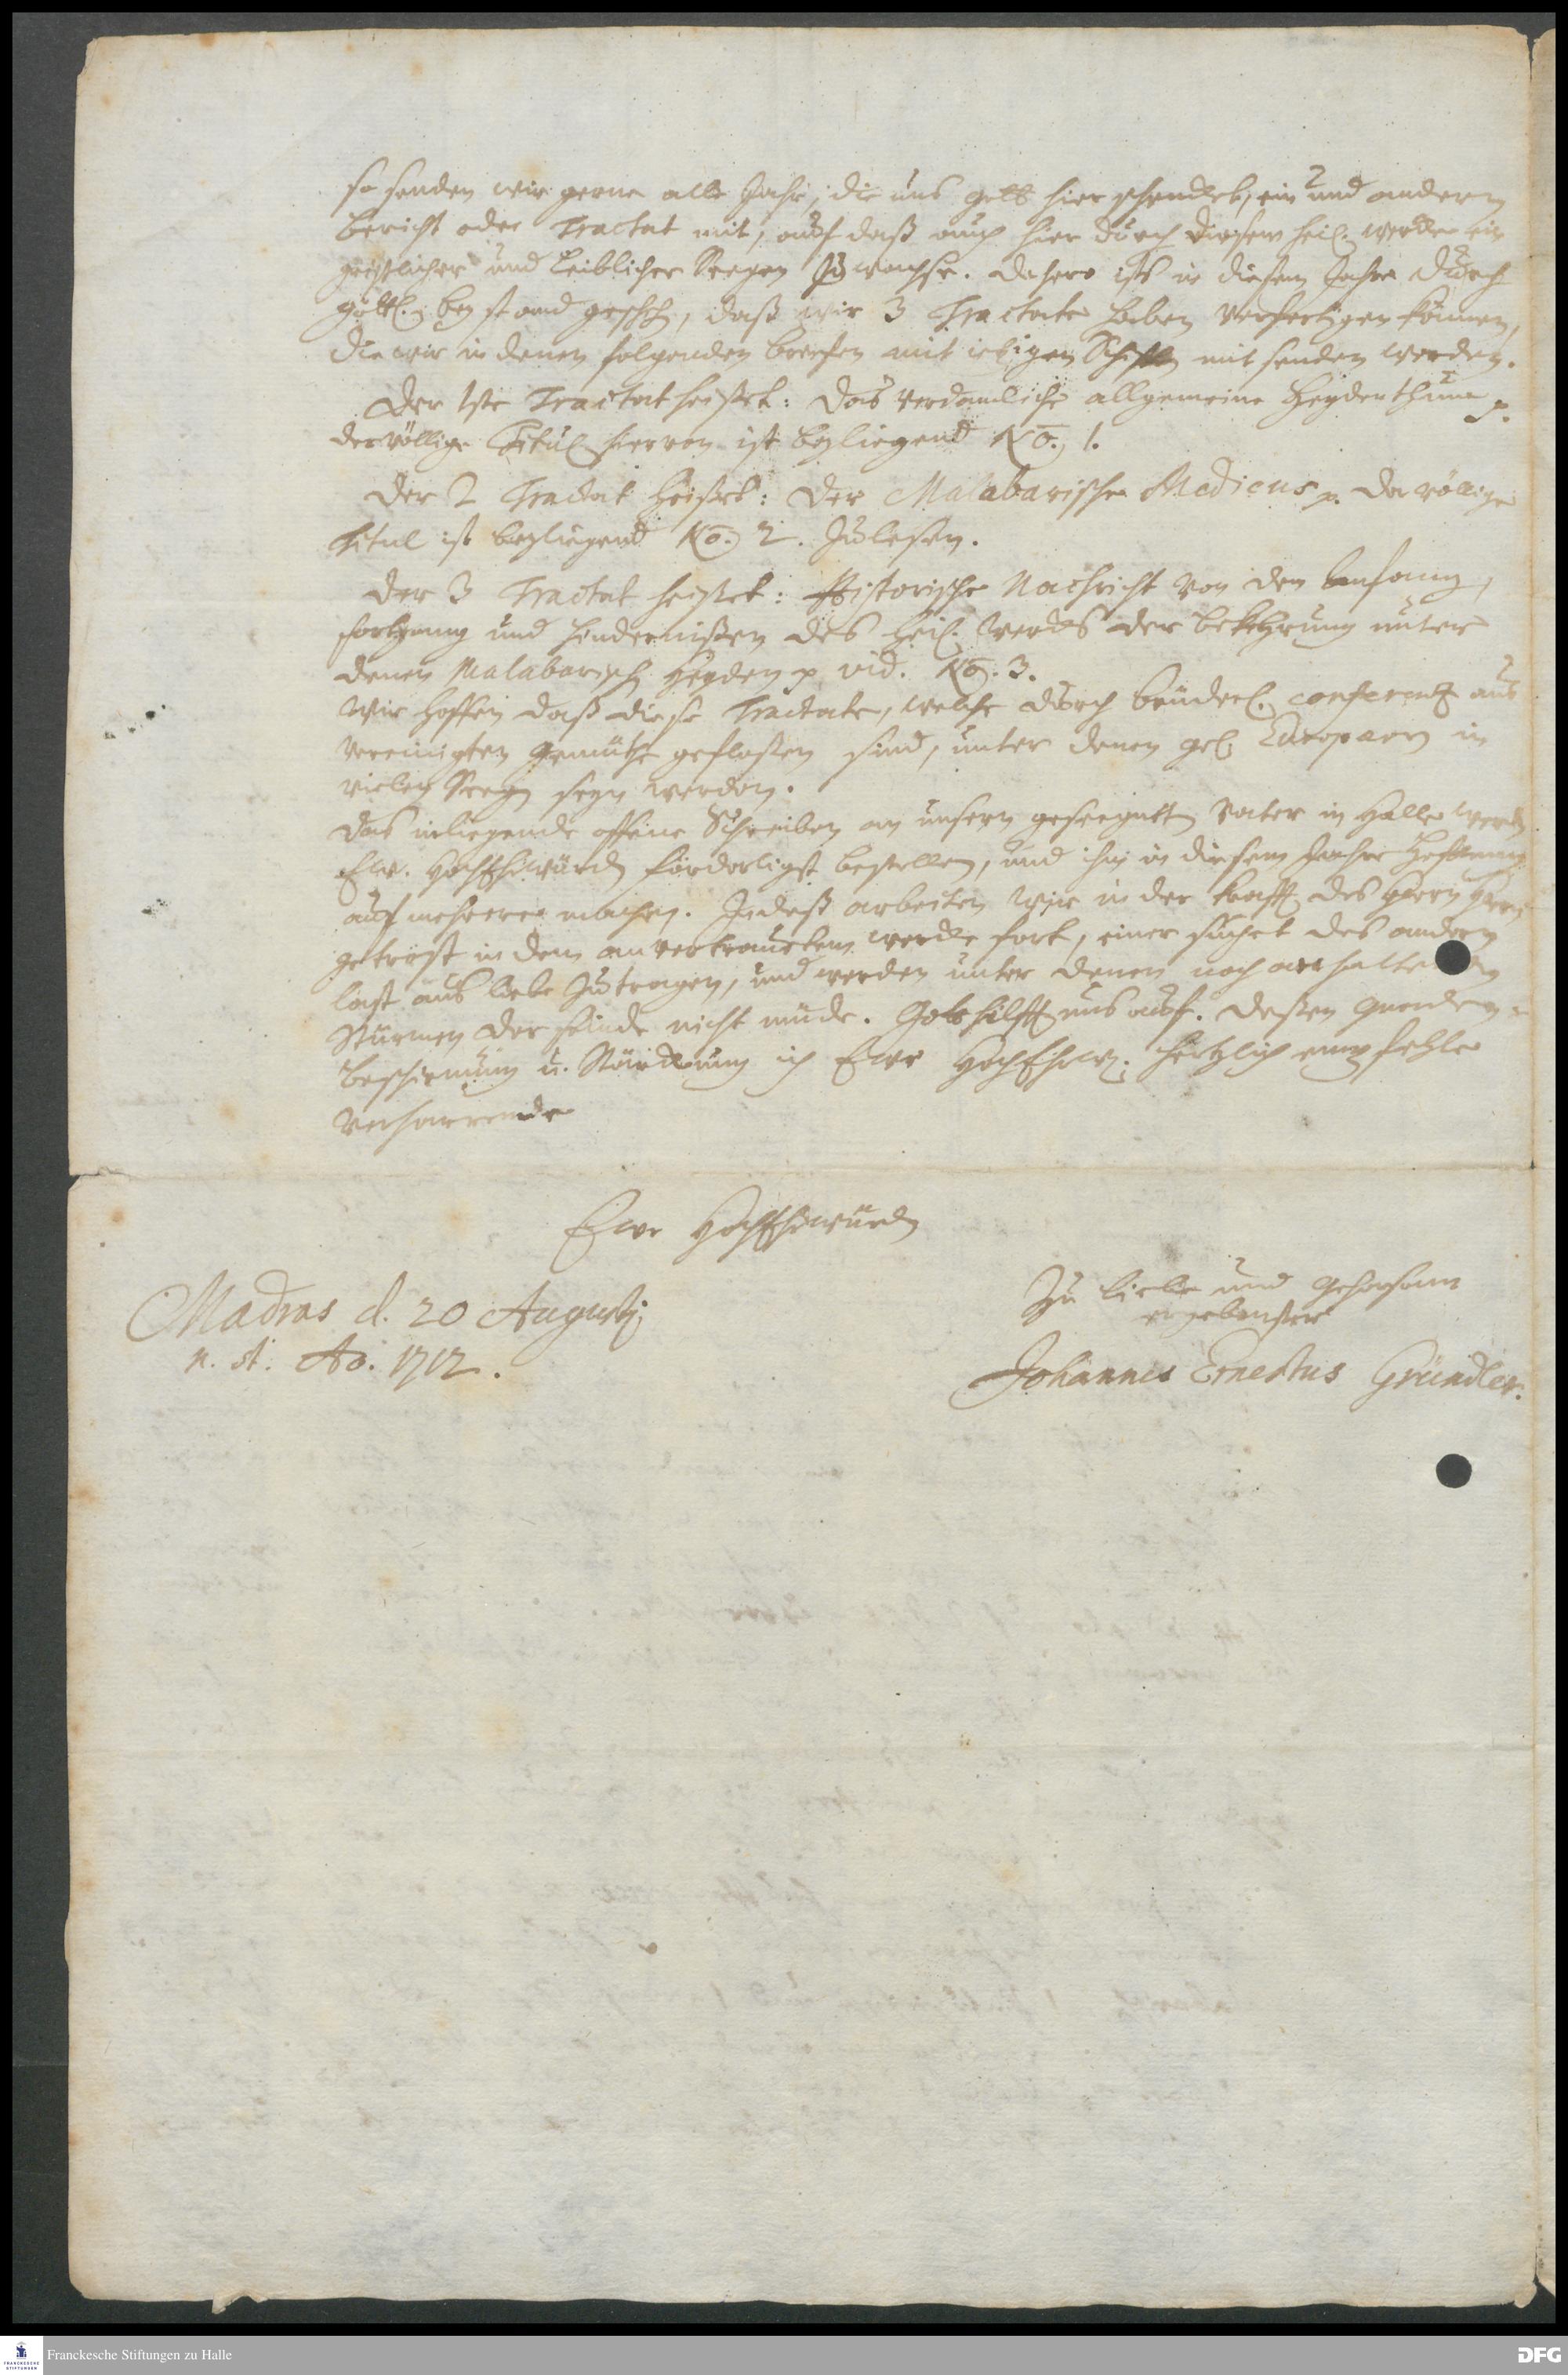 so senden wir gerne alle Jahr, die uns Gott hier schencket, ein und andern
bericht oder Tractat mit, auf daß auch hier durch diesem heil. wercke ein
geistlicher und leiblicher Seegen zu wachse. Dahero ists in diesem Jahre durch
göttl. beystand gescheh, daß wir 3 Tractate haben verfertigen können,
die wir in denen folgenden briefen mit ietzigen Schiffen mit senden werden.
Der 1ste Tractat heißet: Das verdamliche allgemeine Heydenthum p.
der völlige Titul hiervon ist beyliegend No. 1.
Der 2 Tractat heißet: Der Malabarische Medicus p. der völlige
titul ist beyliegend No. 2. zu lesen.
Der 3 Tractat heißet: Historische Nachricht von dem Anfang,
fortgang und hindernißen des heil. Wercks der bekehrung unter
denen Malabarisch Heyden p vid. No. 3.
Wir hoffen daß diese Tractate, welche durch brüderl. conferentz aus
vereinigten Gemüthe gefloßen sind, unter denen Europaern in
vielen Seegen seyn werden.
Das inliegende offene Schreiben an unsern geseegneten Vater in Halle werden
Ew. HochEhrwürd förderligst bestellen, und ihm in diesem Jahre Hoffnung
auf mehrere machen. Indeß arbeiten wir in der krafft des Herrn Herrn
getrost in dem anvertrauetem wercke fort, einer suchet des andern
last aus liebe zu tragen, und werden unter denen noch anhaltenden
Stürmen der feinde nicht müde. Gott hilfft uns auf. deßen Gnaden-
beschirmung u. Stärckung ich Ewr HochEhrw. hertzlich empfehle
verharrende
Ewr HochEhrwürd
Madras d. 20 Augusti
n. st. Ao. 1712.
Zu liebe und gehorsam
ergebenster
Johannes Ernestus Gründler.
Franckesche Stiftungen zu Halle
DFG